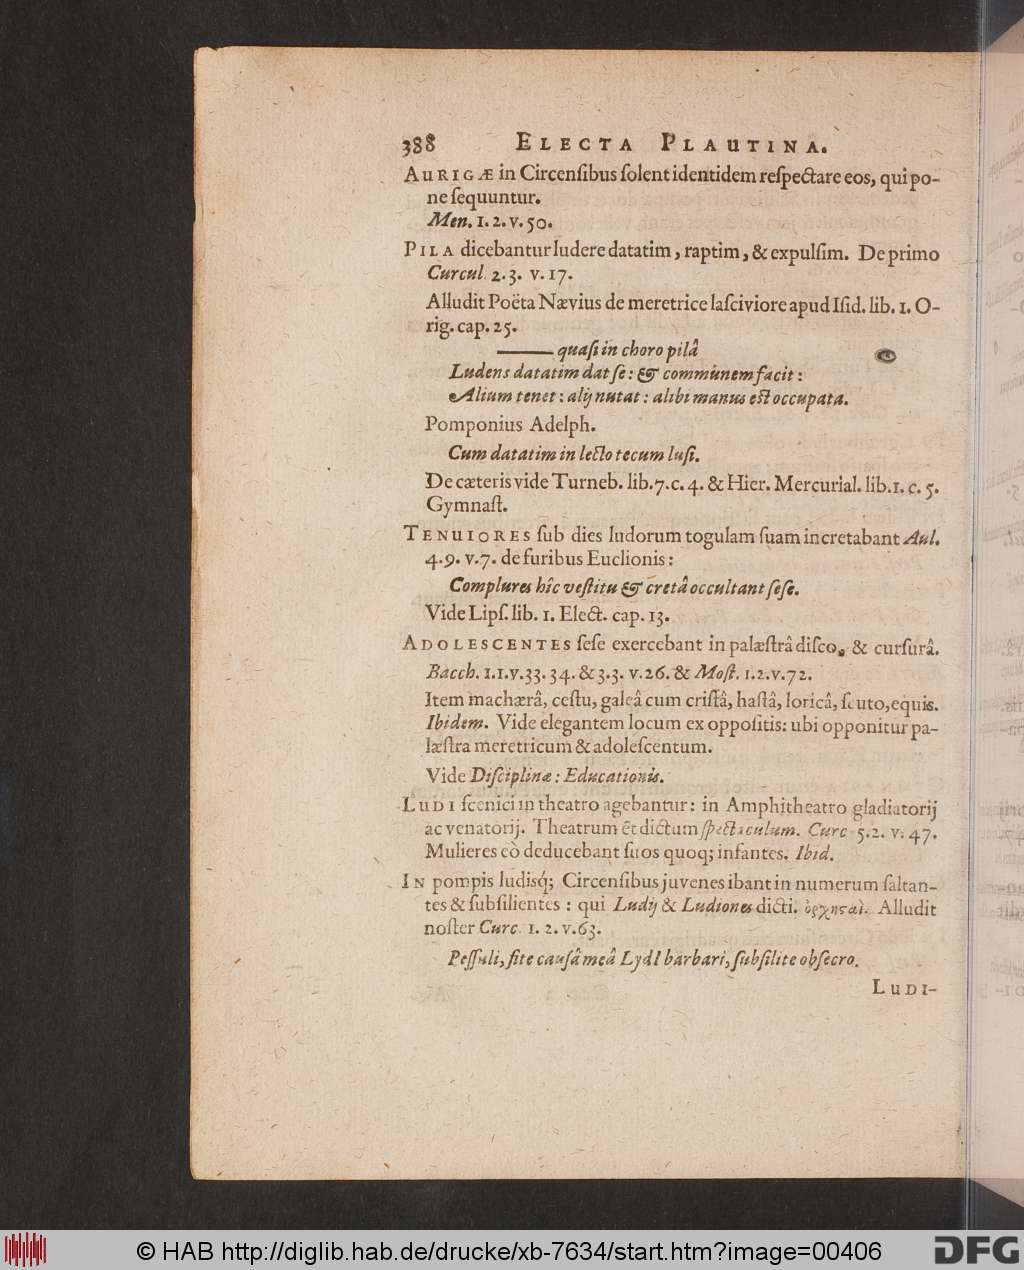 388 ELECTA PLAUTINA.
AURIGÆ in Circenſibus ſolent identidem reſpectare eos, qui po-
ne ſequuntur.
Men. 1. 2. v. 50.
PILA dicebantur ludere datatim, raptim, & expulſim. De primo
Curcul. 2. 3. v. 17.
Alludit Poëta Nævius de meretrice laſciviore apud Iſid. lib. 1. O-
rig. cap. 25.
——— quaſi in choro pilâ
Ludens datatim dat ſe: & commùnem facit:
Alium tenet: alij nutat: alibi manus eſt occupata.
Pomponius Adelph.
Cum datatim in lecto tecum luſi.
De cæteris vide Turneb. lib. 7. c. 4. & Hier. Mercurial. lib. 1. c. 5.
Gymnaſt.
TENUIORES ſub dies ludorum togulam ſuam incretabant Aul.
4. 9. v. 7. de furibus Euclionis:
Complures hîc veſtitu & cretâ occultant ſeſe.
Vide Lipſ. lib. 1. Elect. cap. 13.
ADOLESCENTES ſeſe exercebant in palæſtrâ diſco, & curſurâ.
Bacch. 1. 1. v. 33. 34. & 3. 3. v. 26. & Moſt. 1. 2. v. 72.
Item machærâ, ceſtu, galeâ cum criſtâ, haſtâ, loricâ, ſcuto, equis.
Ibidem. Vide elegantem locum ex oppoſitis: ubi opponitur pa-
læſtra meretricum & adoleſcentum.
Vide Diſciplinæ: Educationis.
LUDI ſcenici in theatro agebantur: in Amphitheatro gladiatorij
ac venatorij. Theatrum & dictum ſpectaculum. Curc. 5. 2. v. 47.
Mulieres eò deducebant ſuos quoq; infantes. Ibid.
IN pompis ludisq́; Circenſibus juvenes ibant in numerum ſaltan-
tes & ſubſilientes: qui Ludij & Ludiones dicti. ὀρχηςαὶ. Alludit
noſter Curc. 1. 2. v. 63.
Peſſuli, fite cauſâ meâ LydI barbari, ſubſilite obſecro.
LUDI-
© HAB http://diglib.hab.de/drucke/xb-7634/start.htm?image=00406
DFG